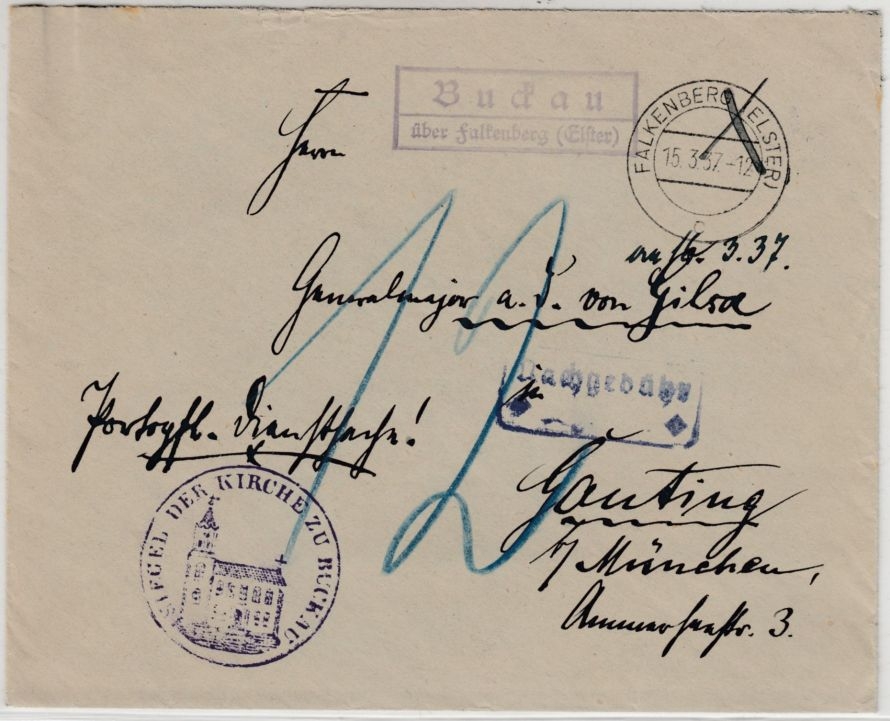 Buckau
über Falkenberg (Elster)
FALKENBERG (ELSTER)
15.3.37.-12
Herrn
3.37.
Generalmajor a. D. von Gilsa
Nachgebühr
in
Portopfl. Dienstsache!
12
Gauting
b/ München,
Ammerseestr. 3.
SIEGEL DER KIRCHE ZU BUCKAU